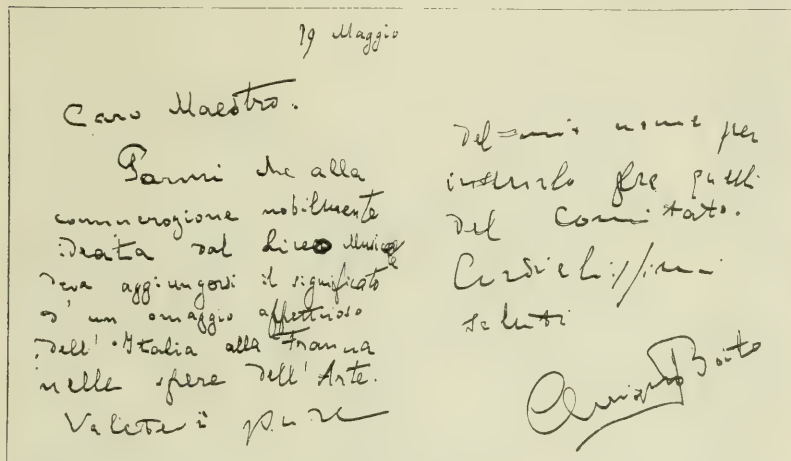 19 Maggio
Caro Maestro.
Parmi che alla
commemorazione nobilmente
ideata dal Liceo Musicale
deva aggiungersi il significato
d'un omaggio affettuoso
dell'Italia alla Francia
nelle sfere dell'Arte.
Valetevi pure
del mio nome per
inserirlo fra quelli
del Comitato.
Cordialissimi
saluti
Arrigo Boito